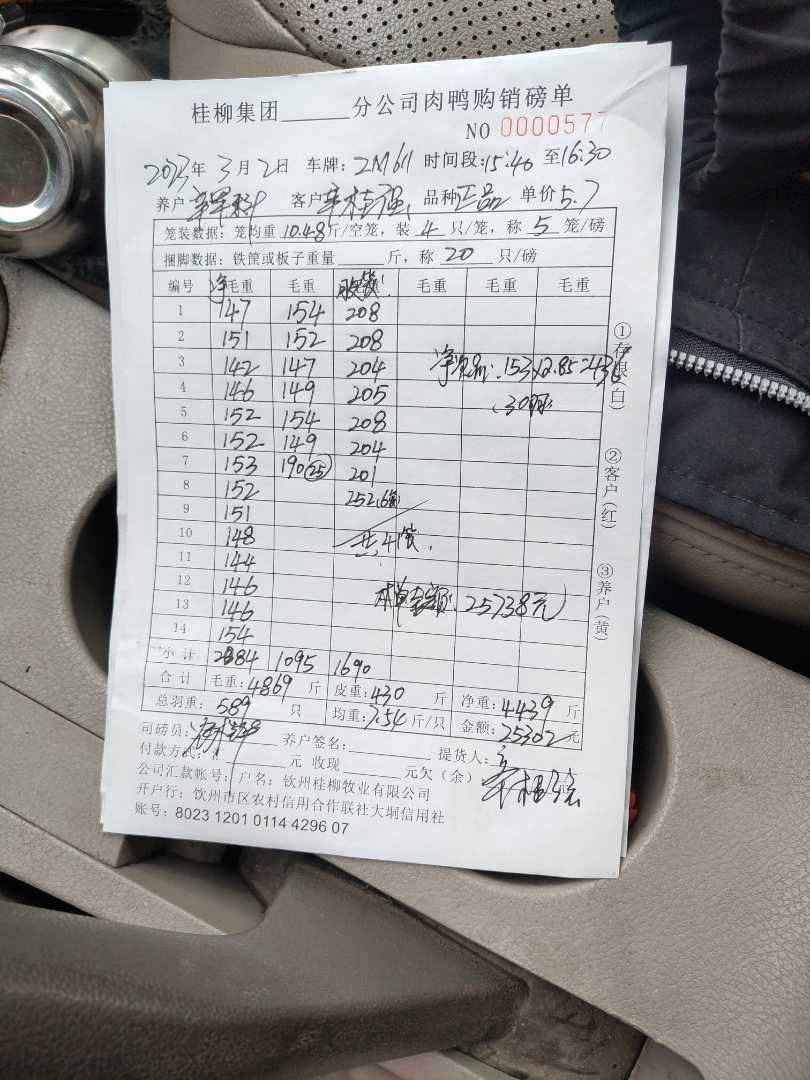 桂柳集团______分公司肉鸭购销磅单
NO 0000577
2023年 3月2日 车牌: 2M611 时间段:15:40 至16:30
养户 客户 品种 正品 单价 5.7
笼装数据: 笼均重 10.48 斤/空笼, 装 4 只/笼, 称 5 笼/磅
捆脚数据: 铁筐或板子重量______斤, 称 20 只/磅
编号 净毛重 毛重 毛重 毛重 毛重
1 147 154 208
2 151 152 208
3 142 147 204
4 146 149 205
5 152 154 208
6 152 149 204
7 153 190 (25) 201
8 152 252
9 151
10 148 共41笼.
11 144
12 146
13 146 25738元
14 154
小计 2084 1095 1690
合计 毛重: 4869 斤 皮重: 430 斤 净重: 4439 斤
总羽重: 589 只 均重: 7.54 斤/只 金额: 25302 元
司磅员: 养户签名: 提货人:
付款方式: 元 收现______元欠(余) 元
公司汇款账号: 户名: 钦州桂柳牧业有限公司
开户行: 钦州市区农村信用合作联社大垌信用社
账号: 8023 1201 0114 4296 07
①存根(白)
②客户(红)
③养户(黄)